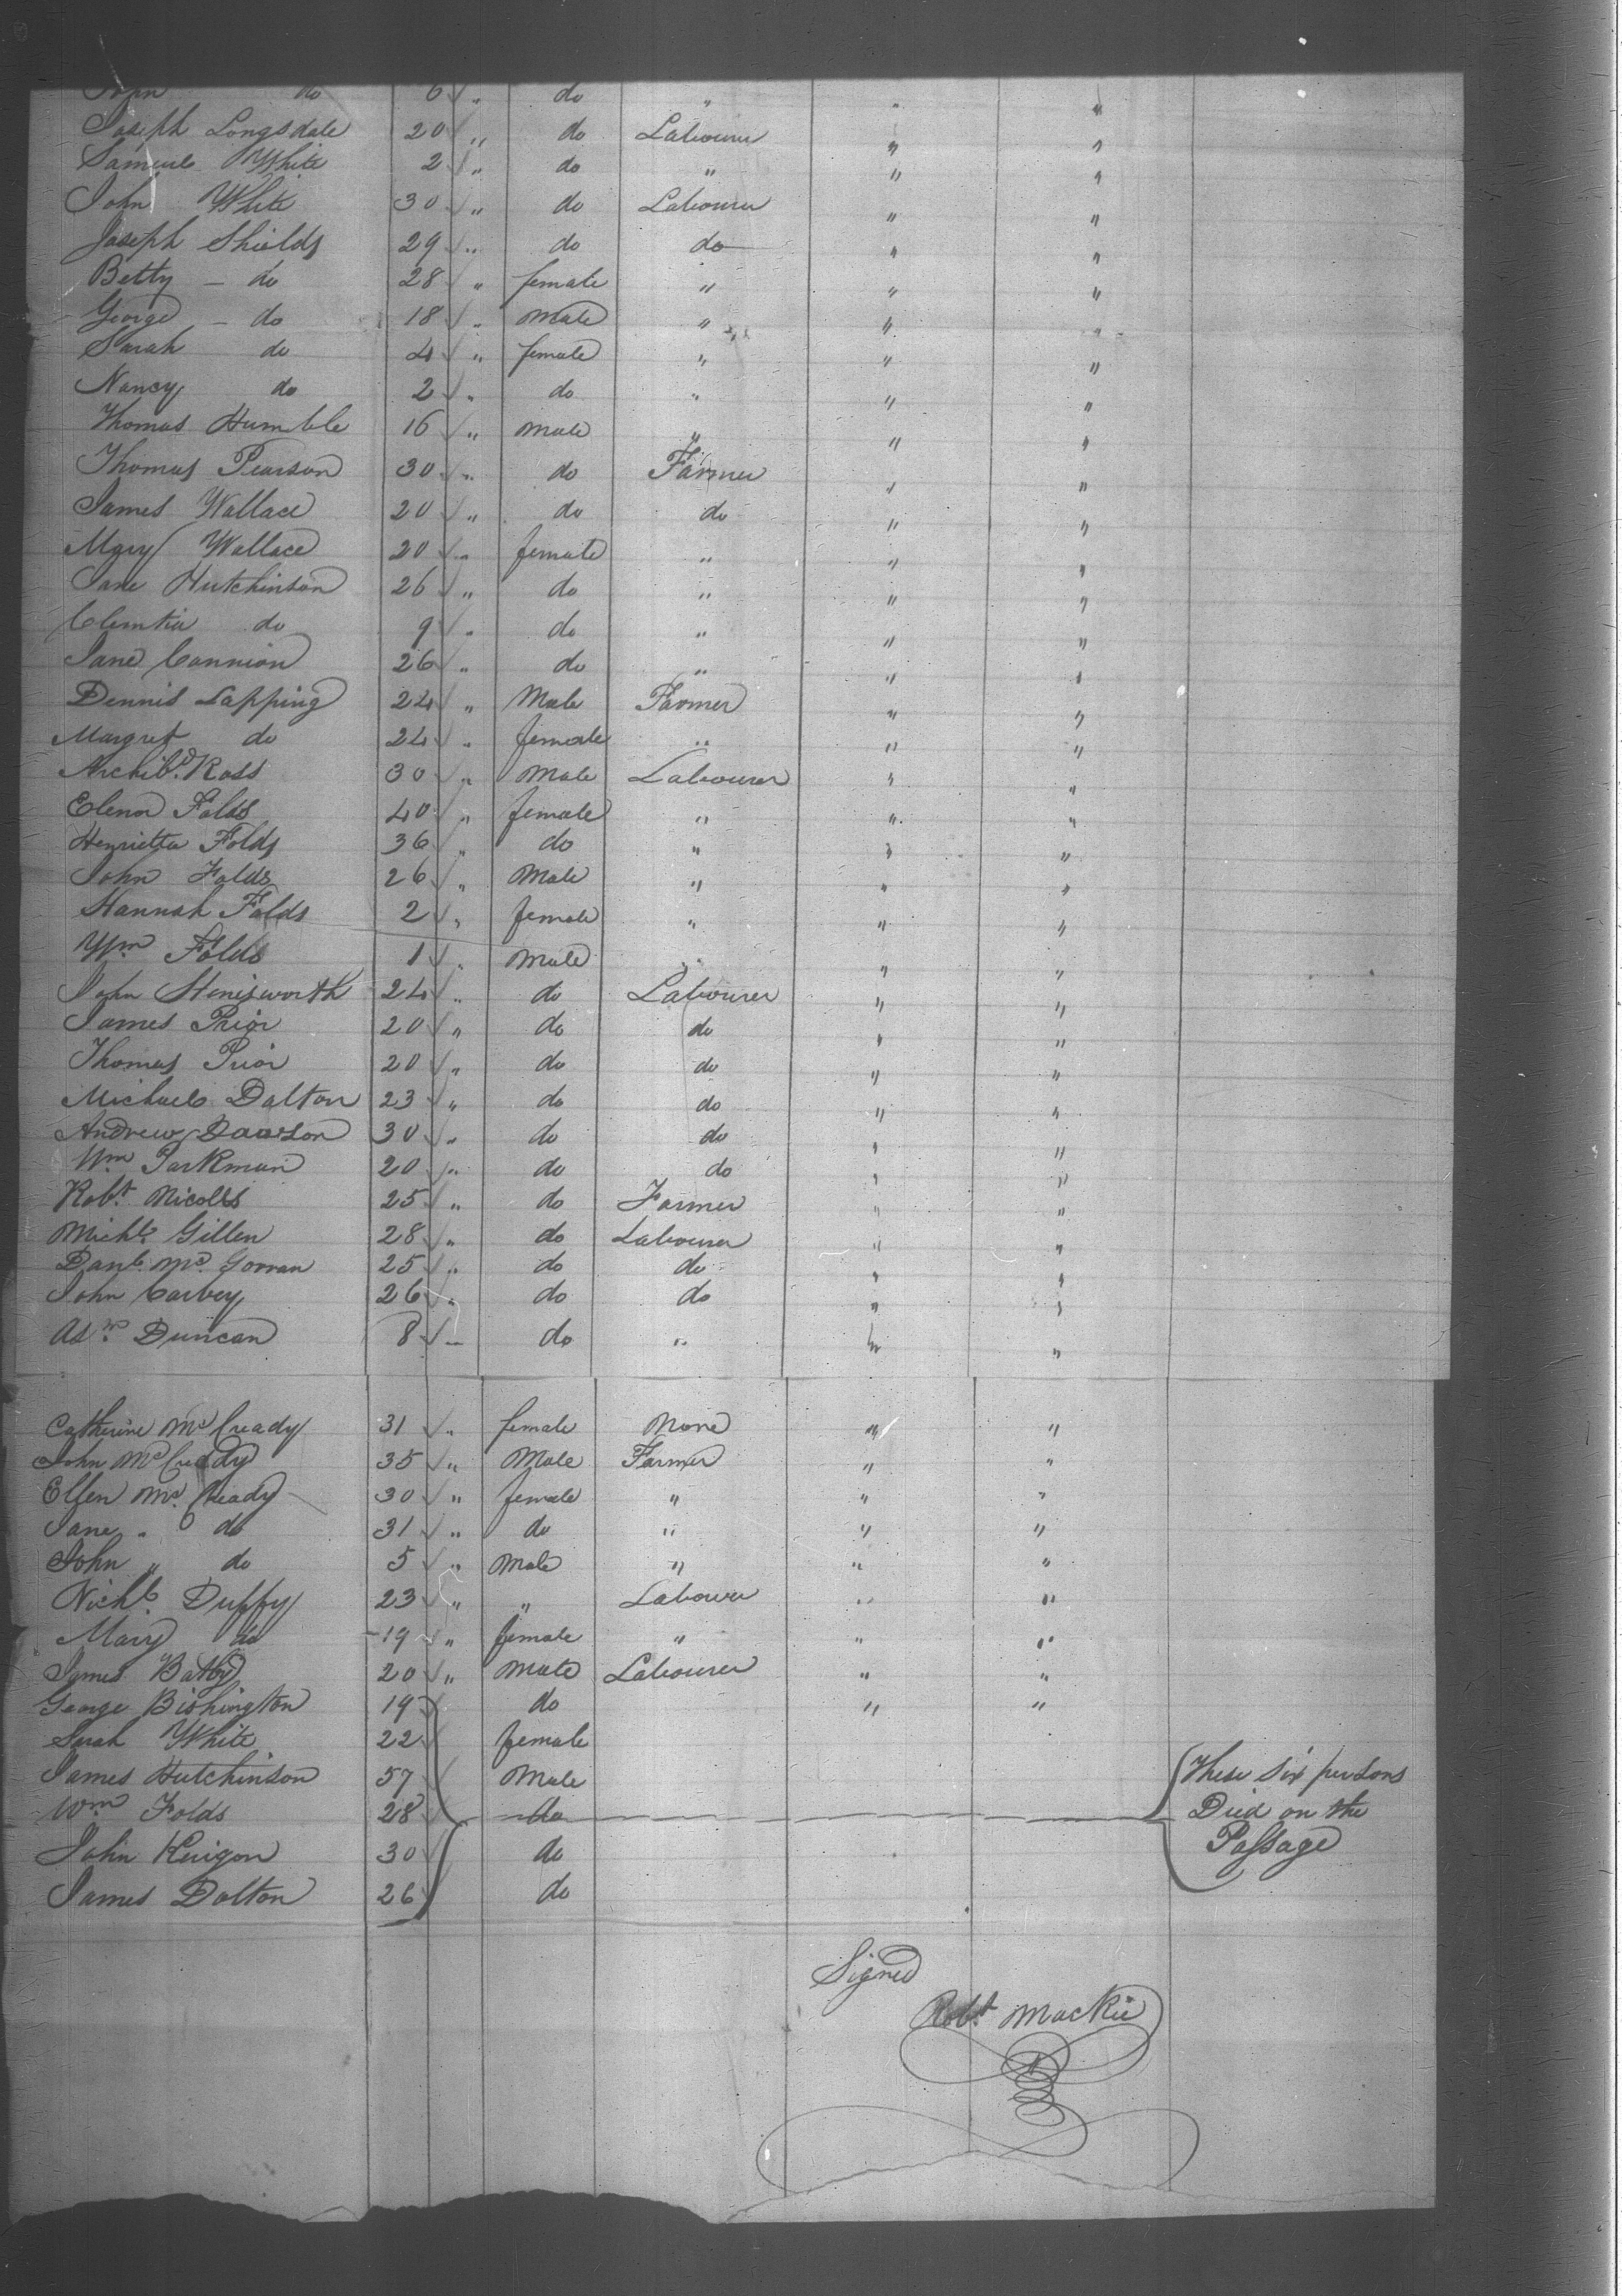 John do 6 " do " " "
Joseph Longsdale 20 " do Labourer " "
Samuel White 2 " do " " "
John White 30 " do Labourer " "
Joseph Shields 29 " do do " "
Betty - do 28 " female " " "
George - do 18 " Male " " "
Sarah do 4 " female " " "
Nancy do 2 " do " " "
Thomas Humble 16 " Male " " "
Thomas Pearson 30 " do Farmer " "
James Wallace 20 " do do " "
Mary Wallace 20 " female " " "
Jane Hutchinson 26 " do " " "
Clemtia do 9 " do " " "
Jane Cannion 26 " do " " "
Dennis Lapping 24 " Male Farmer " "
Margret do 24 " female " " "
Archibd. Ross 30 " Male Labourer " "
Elenor Folds 40 " female " " "
Henrietta Folds 36 " do " " "
John Folds 26 " Male " " "
Hannah Folds 2 " female " " "
Wm Folds 1 " Male " " "
John Henisworth 24 " do Labourer " "
James Prior 20 " do do " "
Thomas Prior 20 " do do " "
Michael Dalton 23 " do do " "
Andrew Dawson 30 " do do " "
Wm Parkman 20 " do do " "
Robt. Nicolls 25 " do Farmer " "
Michl. Gillen 28 " do Labourer " "
Danl. Mc. Gorran 25 " do do " "
John Carvey 26 " do do " "
Duncan 8 " do " " "
Catherine Mc Cready 31 " female None " "
John Mc Cready 35 " Male Farmer " "
Ellen Mc. Cready 30 " female " " "
Jane " do 31 " do " " "
John " do 5 " Male " " "
Nichl. Duffy 23 " " Labourer " "
Mary do 19 " female " " "
James 20 " Male Labourer " "
George Bishington 19 do " "
Sarah White 22 female
James Hutchinson 57 Male These six persons
Wm Folds 28 do Died on the
John Kerigon 30 do Passage
James Dalton 26 do
Signed
Robt. Mackie